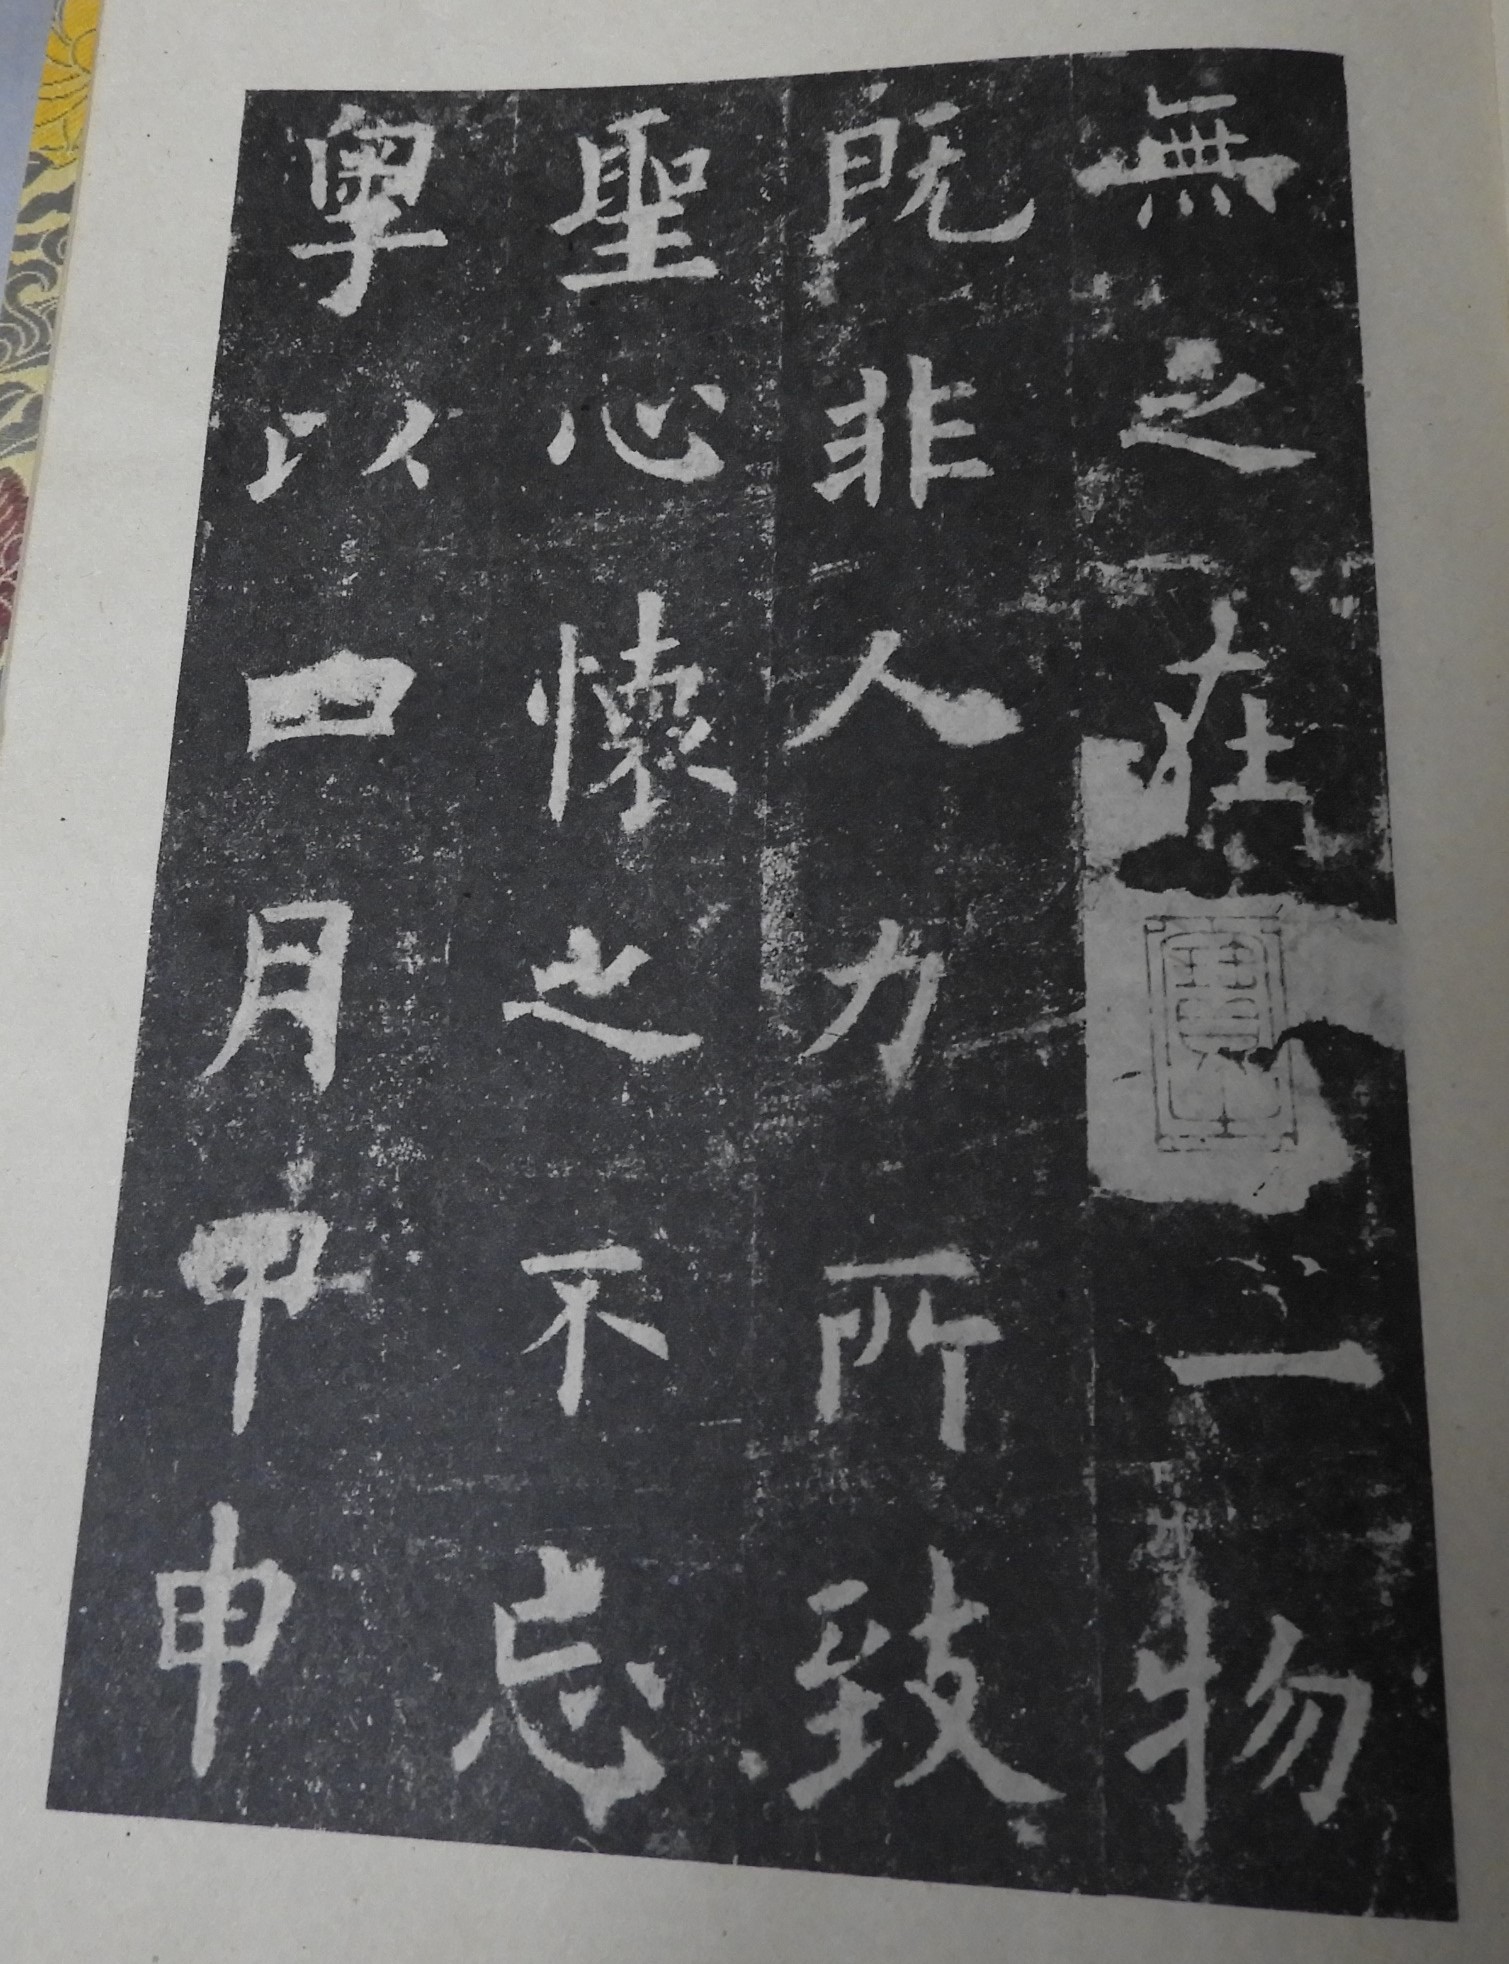 無之在二物
既非人力所致
聖心懷之不忘
粤以四月甲申